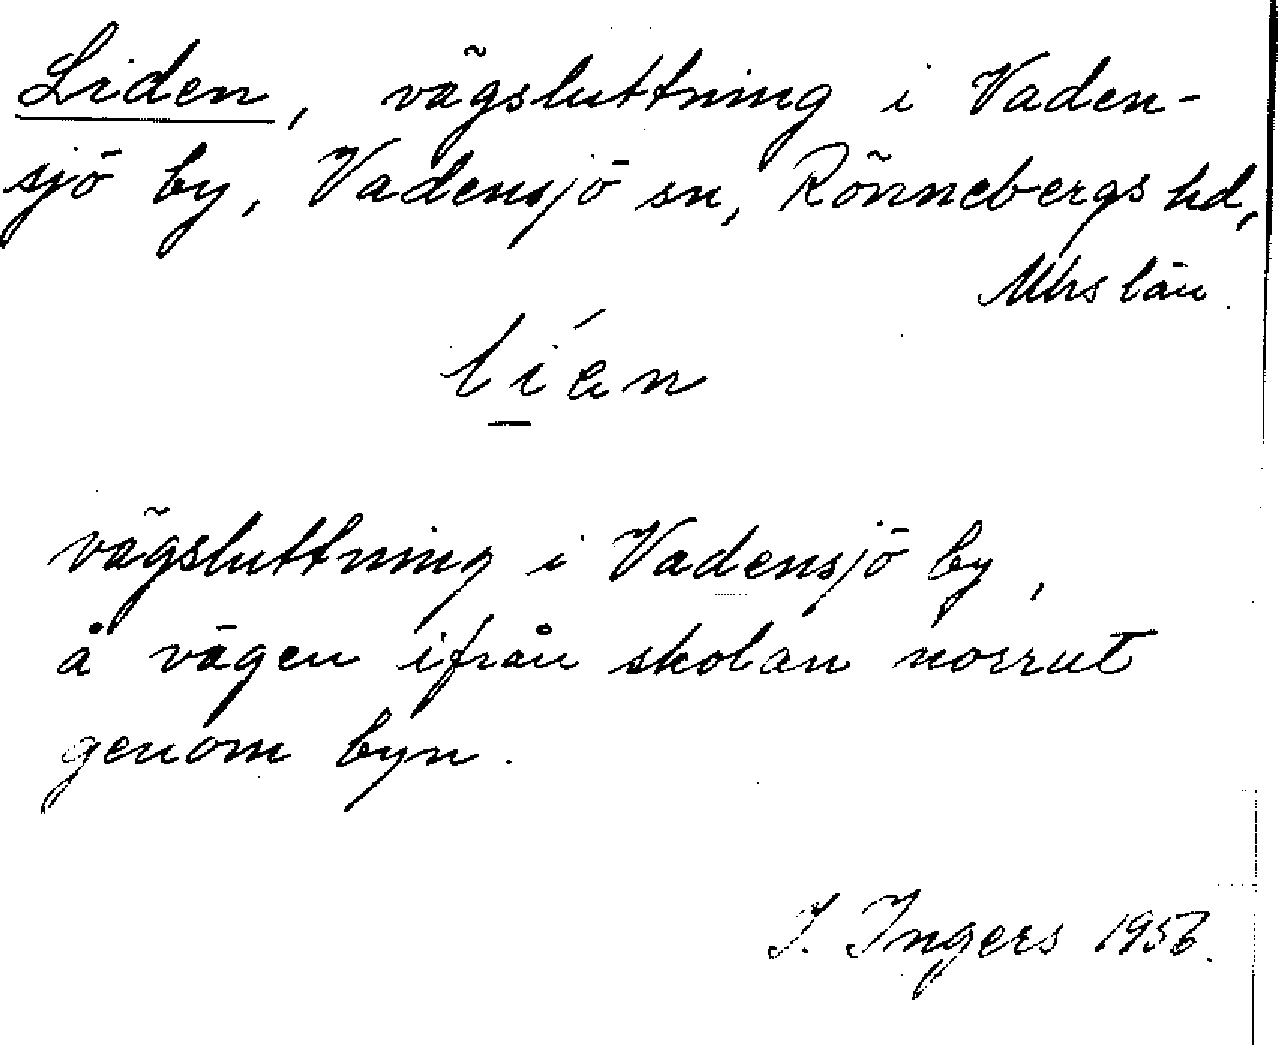 Liden, vägsluttning i Vaden-
sjö by, Vadensjö sn, Rönnebergs hd,
Mhs län.
líɘn
vägsluttning i Vadensjö by,
å vägen ifrån skolan norrut
genom byn.
I. Ingers 1956.